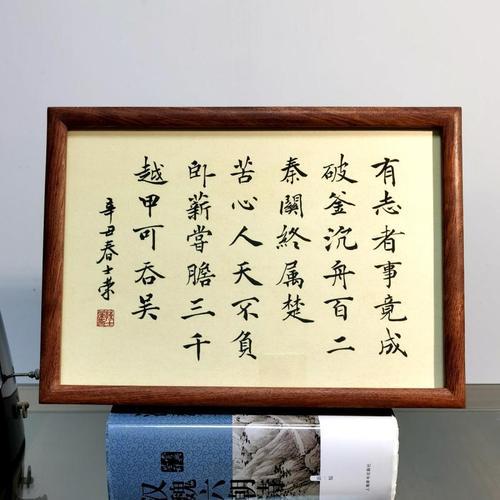 有志者事竟成
破釜沉舟百二
秦關終属楚
苦心人天不負
卧薪嘗膽三千
越甲可吞吴
辛丑春士荣
汉魏六朝